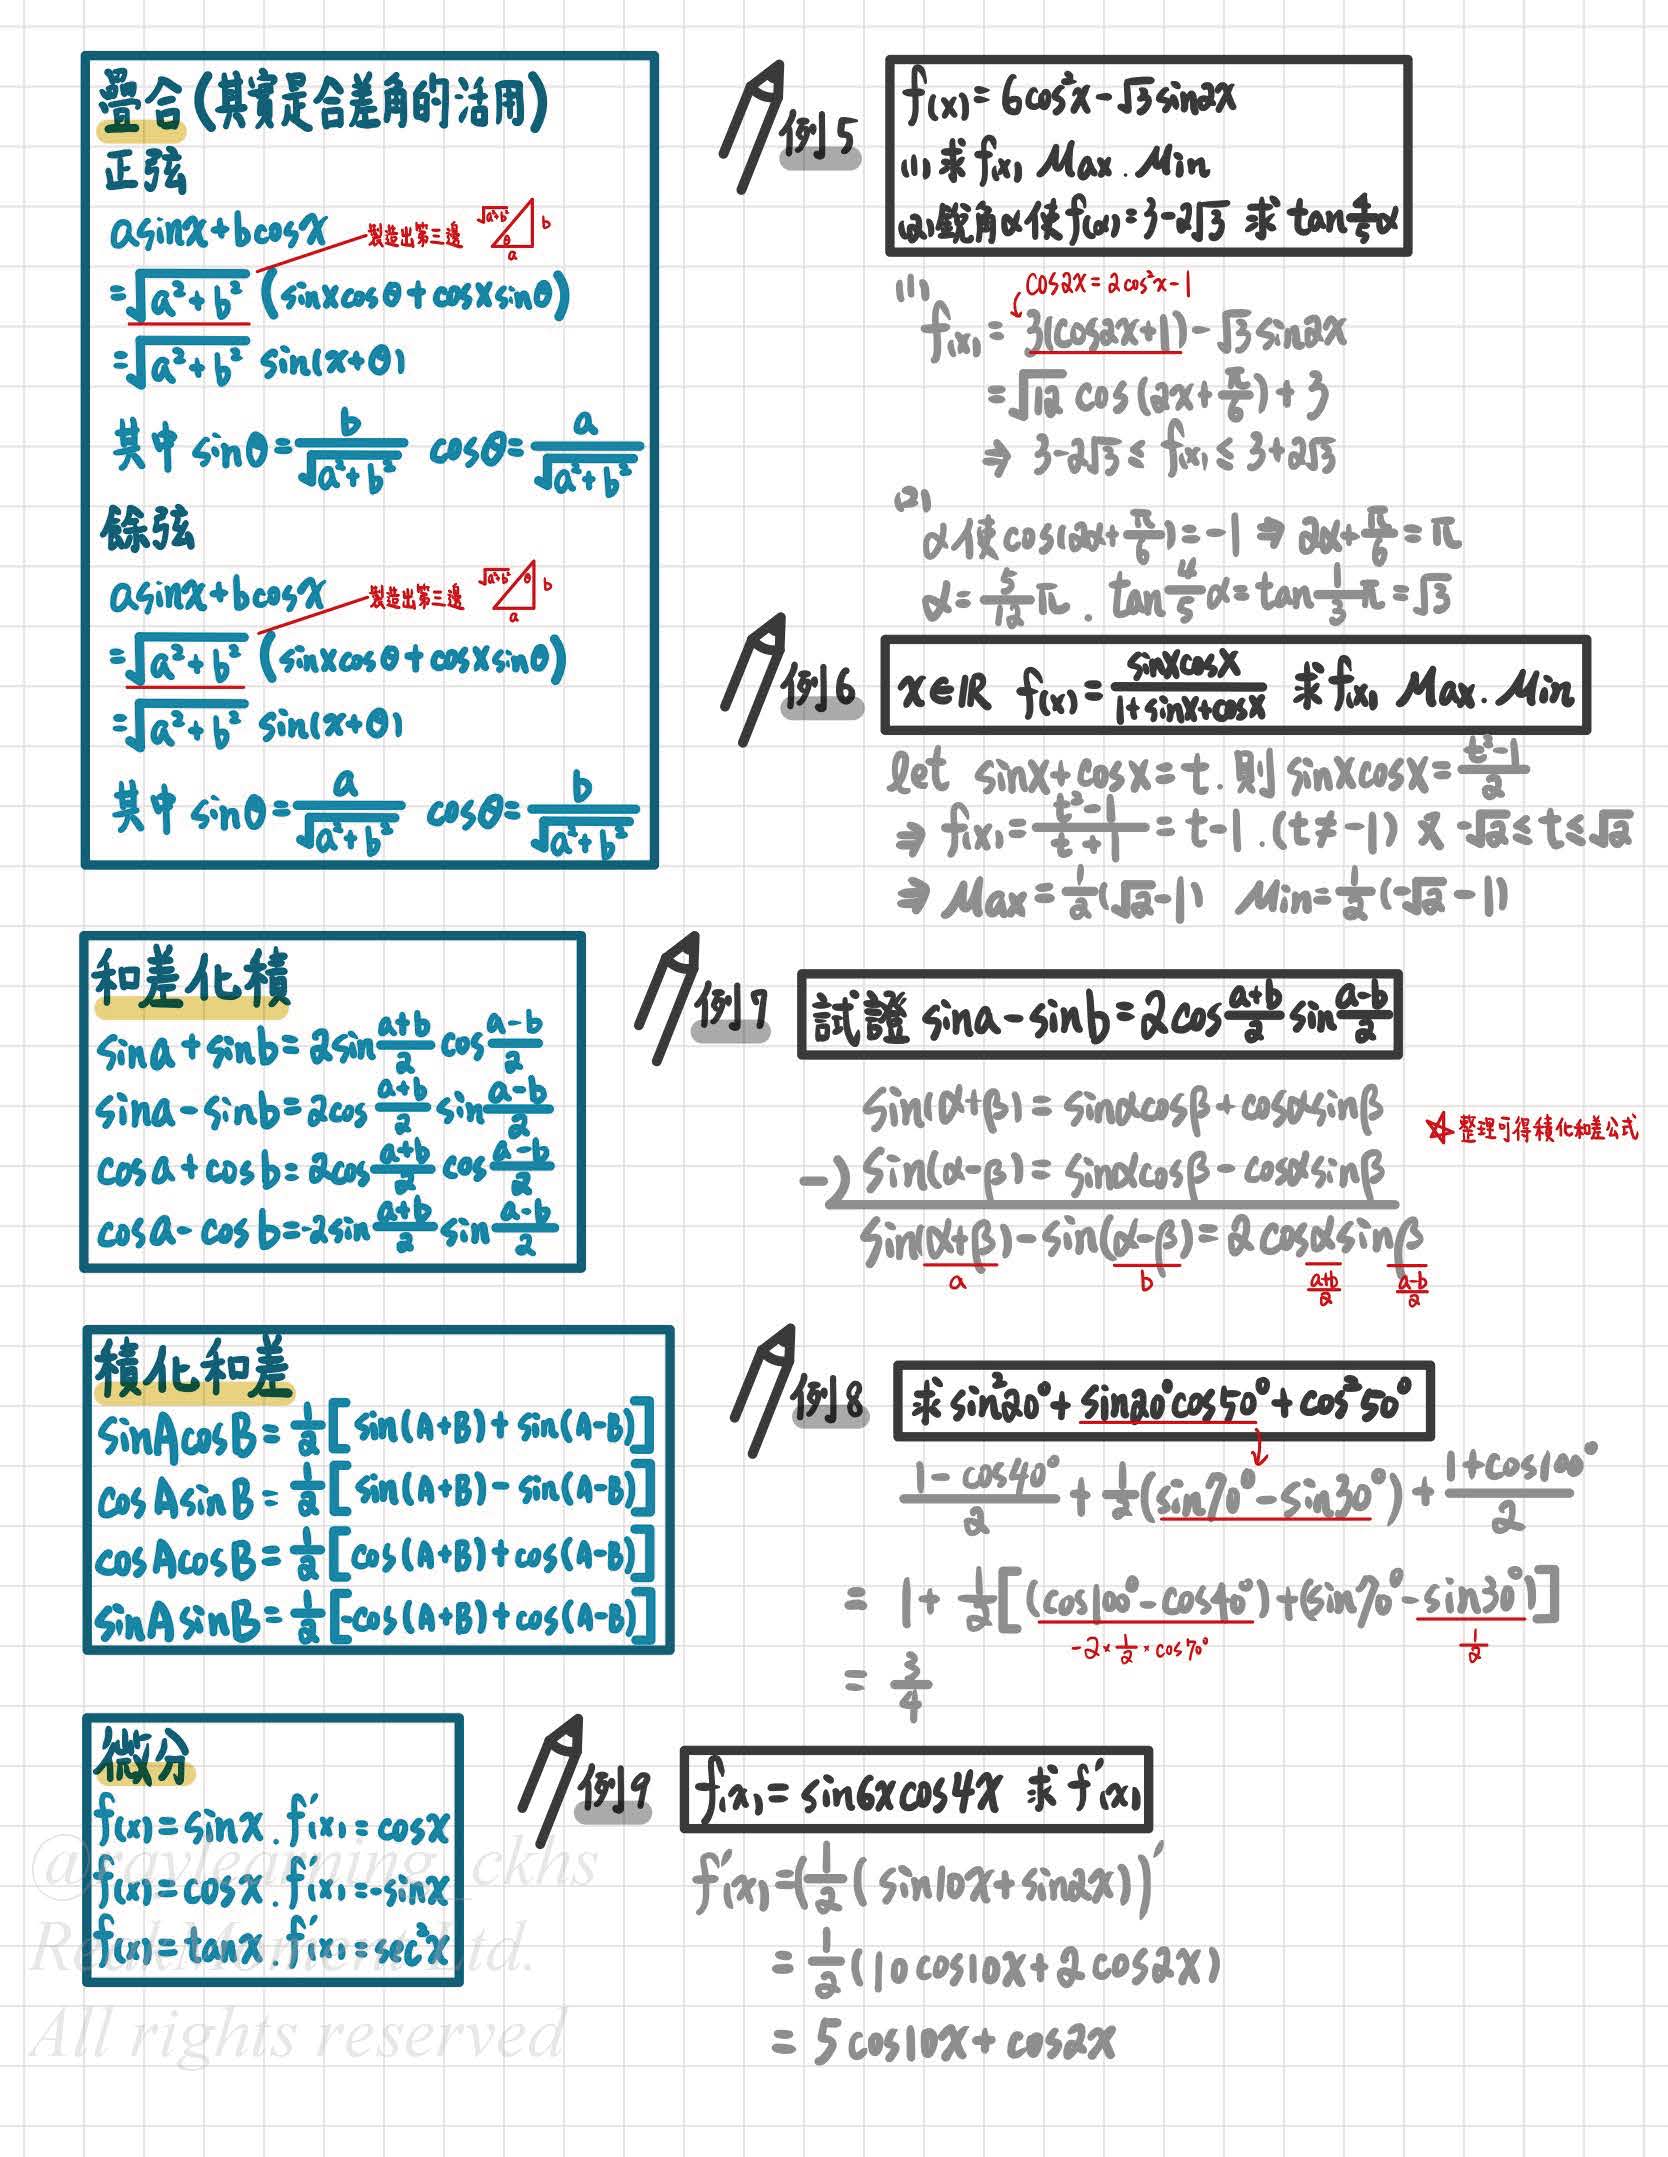 疊合(其實是合差角的活用)
正弦
asinx+bcosx
製造出第三邊
√a²+b² b
θ
a
=√a²+b² (sinxcosθ+cosxsinθ)
=√a²+b² sin(x+θ)
其中 sinθ=b/√a²+b² cosθ=a/√a²+b²
餘弦
asinx+bcosx
製造出第三邊
√a²+b² θ b
a
=√a²+b² (sinxcosθ+cosxsinθ)
=√a²+b² sin(x+θ)
其中 sinθ=a/√a²+b² cosθ=b/√a²+b²
例5
f(x)=6cos²x-√3sin2x
(1)求f(x) Max.Min
(2)銳角α使f(α)=3-2√3 求tan4/5α
(1)
cos2x=2cos²x-1
f(x)=3(cos2x+1)-√3sin2x
=√12 cos(2x+π/6)+3
⇒ 3-2√3≤f(x)≤3+2√3
(2)
α使cos(2α+π/6)=-1⇒2α+π/6=π
α=5/12π. tan4/5α=tan1/3π=√3
例6
x∈IR f(x)=sinxcosx/1+sinx+cosx 求f(x) Max.Min
let sinx+cosx=t.則sinxcosx=t²-1/2
⇒ f(x)=t²-1/t+1=t-1.(t≠-1) 又 -√2≤t≤√2
⇒ Max=1/2(√2-1) Min=1/2(-√2-1)
和差化積
sina+sinb=2sin a+b/2 cos a-b/2
sina-sinb=2cos a+b/2 sin a-b/2
cosa+cosb=2cos a+b/2 cos a-b/2
cosa-cosb=-2sin a+b/2 sin a-b/2
例7
試證 sina-sinb=2cos a+b/2 sin a-b/2
sin(α+β)=sinαcosβ+cosαsinβ
☆整理可得積化和差公式
-) sin(α-β)=sinαcosβ-cosαsinβ
sin(α+β)-sin(α-β)=2cosαsinβ
a b a+b/2 a-b/2
積化和差
sinAcosB=1/2[sin(A+B)+sin(A-B)]
cosAsinB=1/2[sin(A+B)-sin(A-B)]
cosAcosB=1/2[cos(A+B)+cos(A-B)]
sinAsinB=1/2[-cos(A+B)+cos(A-B)]
例8
求sin²20°+sin20°cos50°+cos²50°
1-cos40°/2+1/2(sin70°-sin30°)+1+cos100°/2
=1+1/2[(cos100°-cos40°)+(sin70°-sin30°)]
-2×1/2×cos70° 1/2
=3/4
微分
f(x)=sinx.f'(x)=cosx
f(x)=cosx.f'(x)=-sinx
f(x)=tanx.f'(x)=sec²x
例9
f(x)=sin6xcos4x 求f'(x)
f'(x)=(1/2(sin10x+sin2x))'
=1/2(10cos10x+2cos2x)
=5cos10x+cos2x
@raylearning_ckhs
ReakMoment Ltd.
All rights reserved